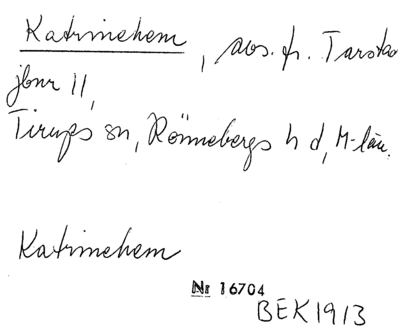 Katrinehem, avs. fr. Tarstad
jbnr 11,
Tirups sn, Rönnebergs hd, M-län.
Katrinehem
Nr 16704
BEK 1913